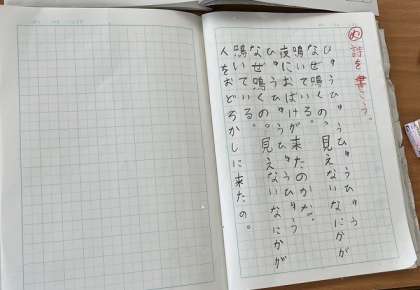 め 詩を書こう。
ひゅうひゅうひゅうひゅう
なぜ鳴くの。見えないなにかが
鳴いている。
夜におばけが来たのかな。
ひゅうひゅうひゅうひゅう
なぜ鳴くの。見えないなにかが
鳴いている。
人をおどろかしに来たの。